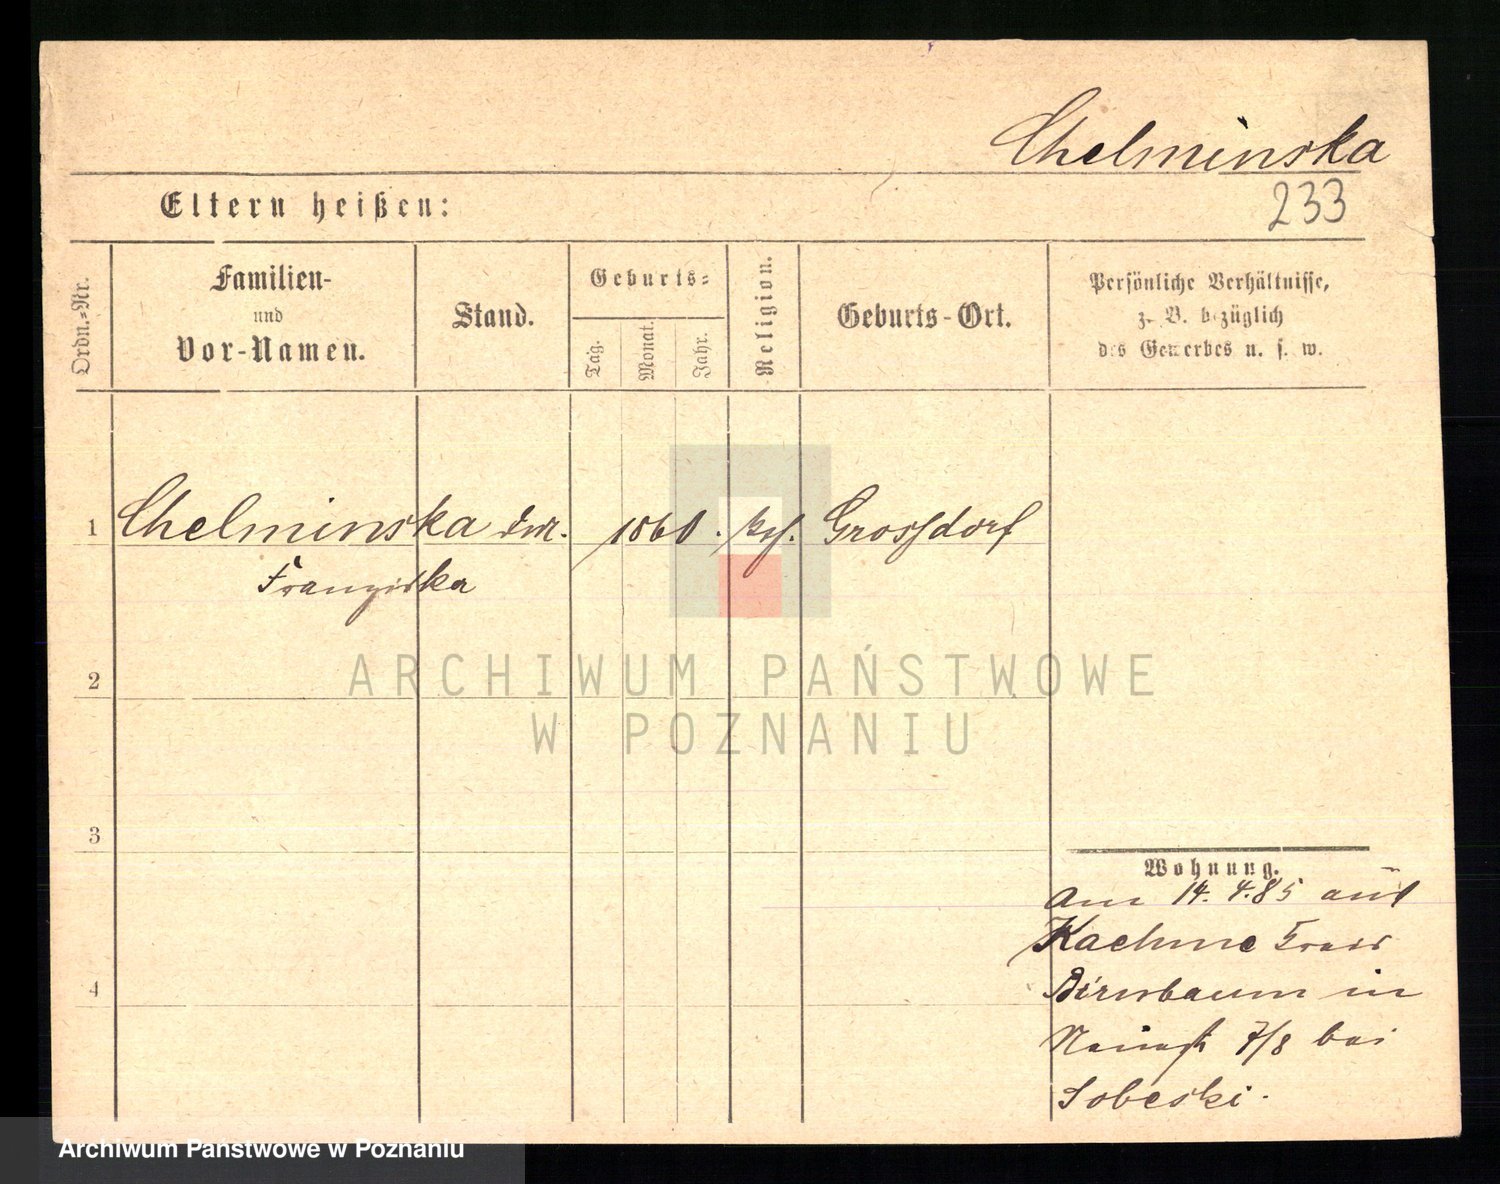 Chelminska
233
Eltern heißen:
Ordn.-Nr.
Familien-
und
Vor-Namen.
Stand.
Geburts-
Tag.
Monat.
Jahr.
Religion.
Geburts-Ort.
Persönliche Verhältnisse,
z. B. bezüglich
des Gewerbes u. s. w.
1 Chelminska 1860. Grossdorf
Franziska
2
3
4
Wohnung.
Am 14. 4. 85 aus
Kaehme
Birnbaum in
7/8 bei
Sobeski.
ARCHIWUM PAŃSTWOWE
W POZNANIU
Archiwum Państwowe w Poznaniu